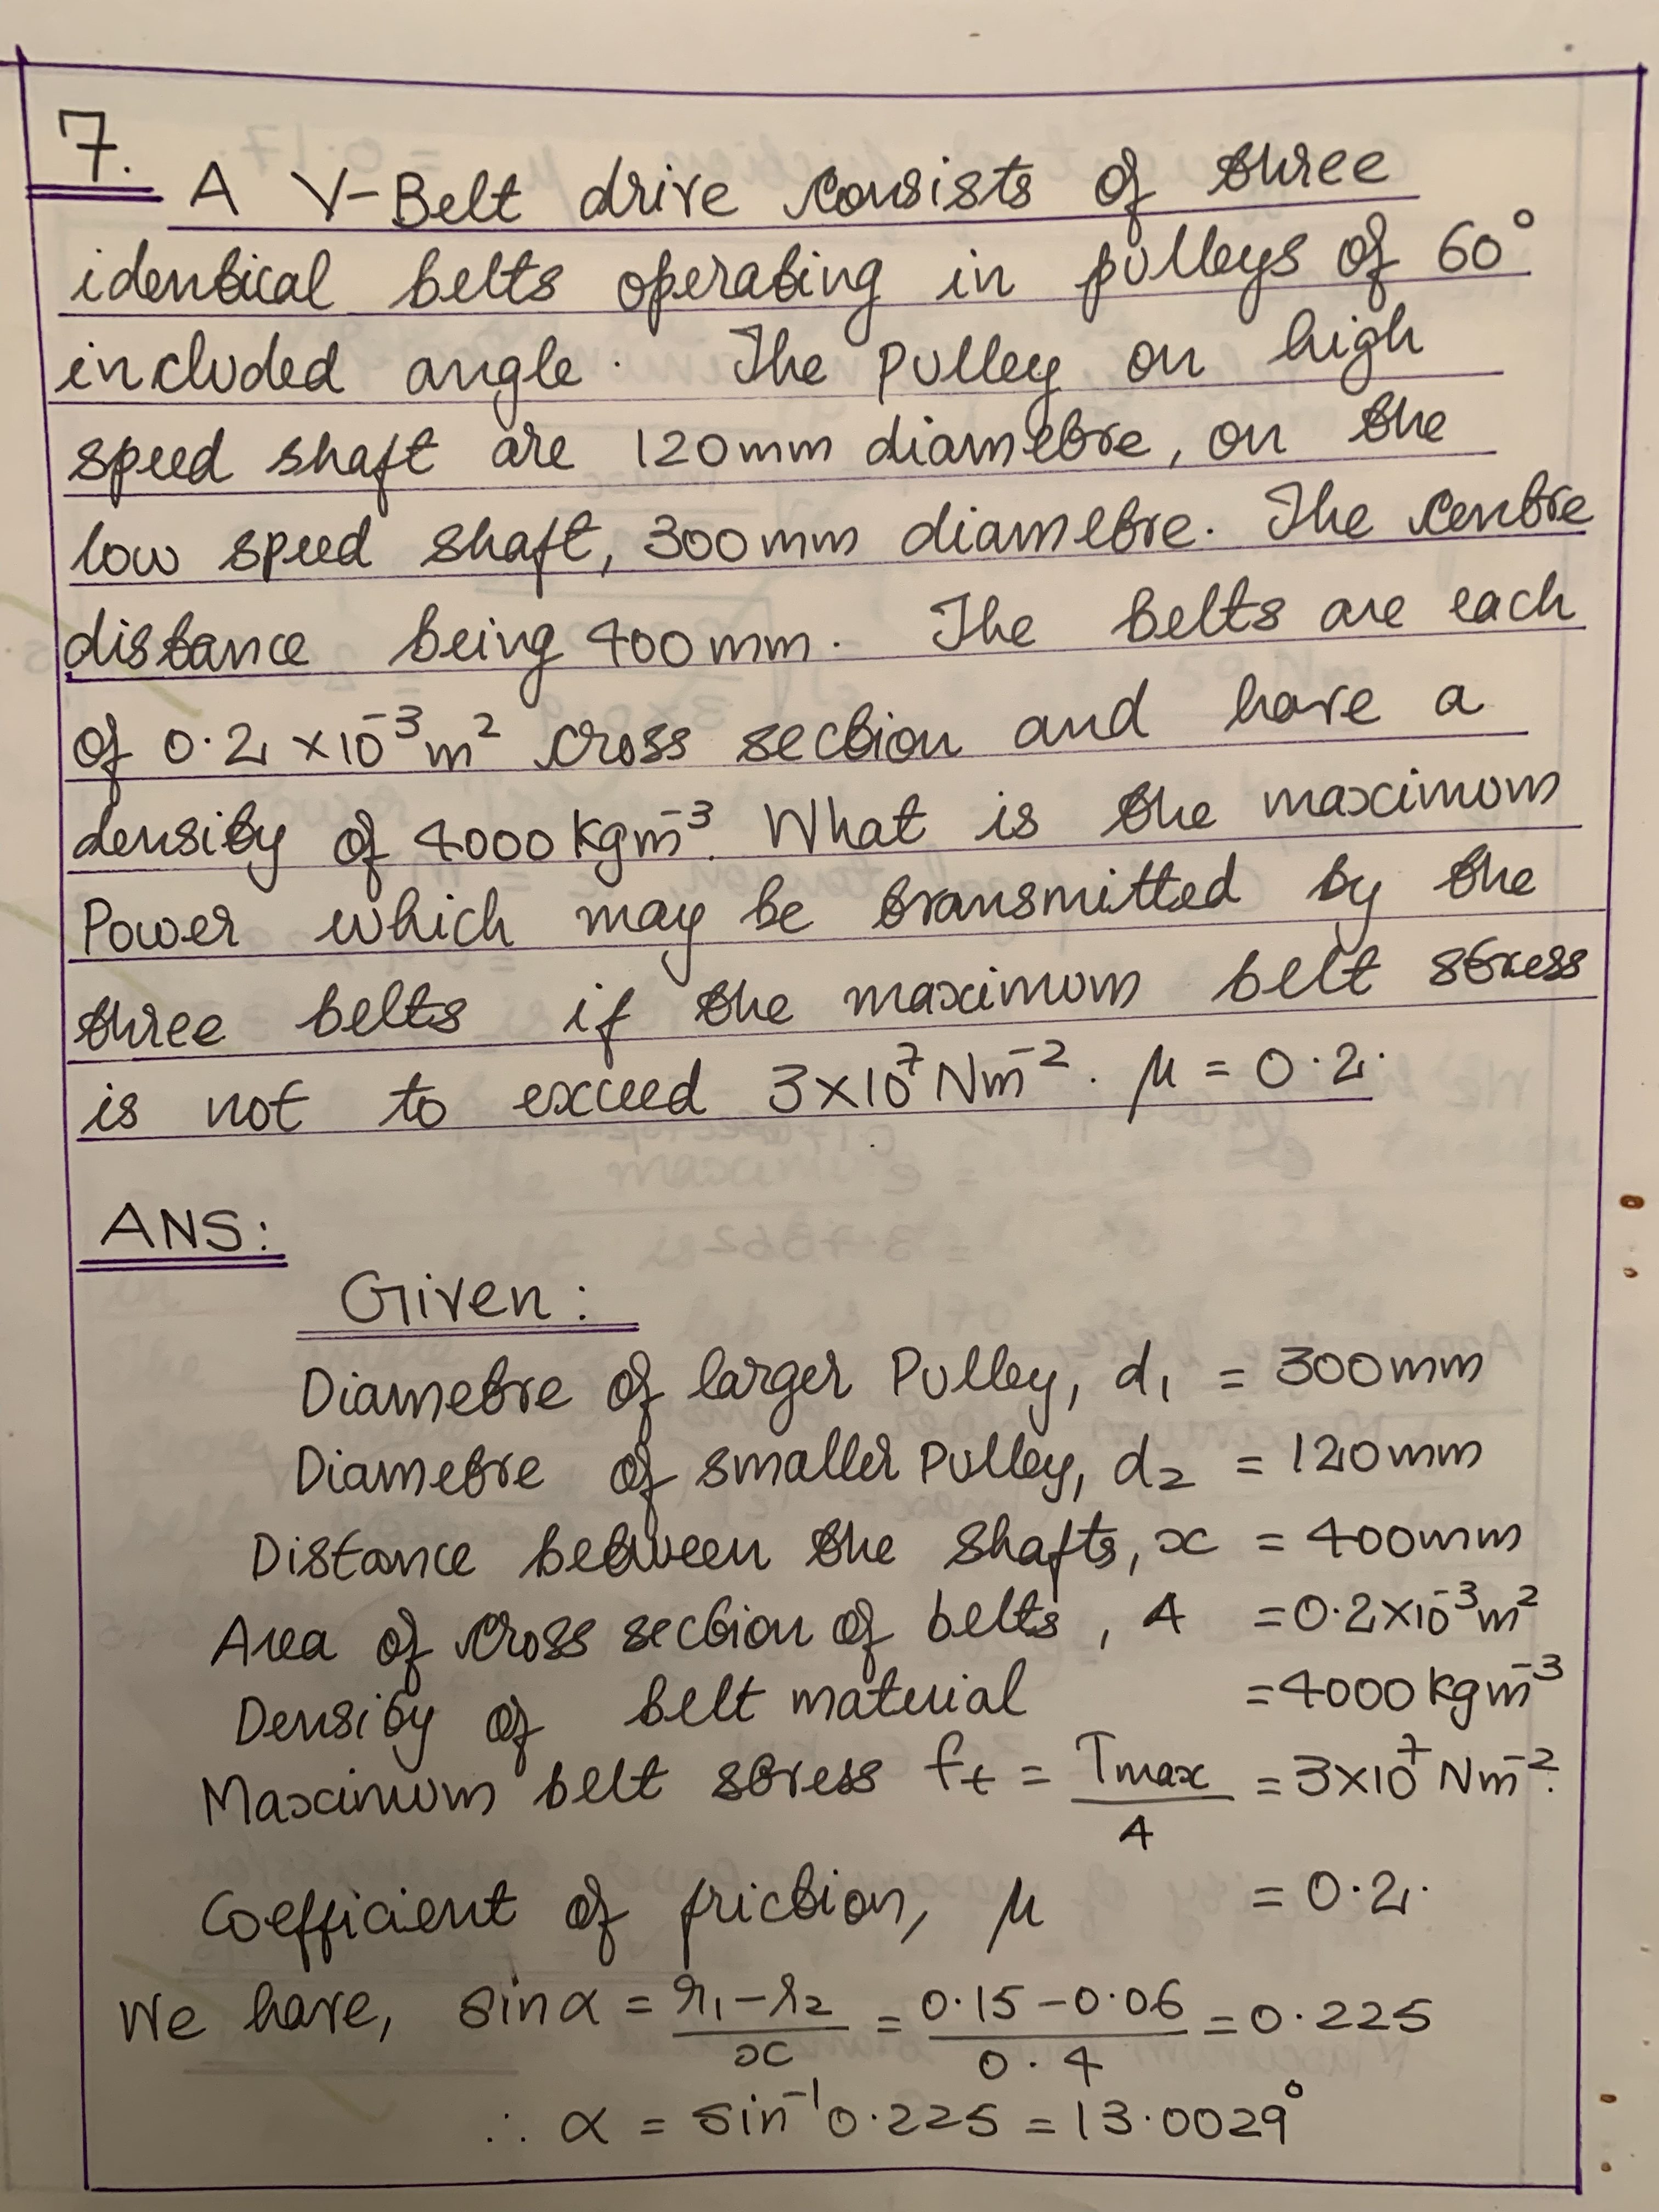 7. A V-Belt drive consists of three
identical belts operating in pulleys of 60°
included angle. The Pulley on high
speed shaft are 120mm diametre, on the
low speed shaft, 300mm diametre. The centre
distance being 400mm. The belts are each
of 0.2 ×10⁻³m² cross section and have a
density of 4000 kgm⁻³. What is the maximum
Power which may be transmitted by the
three belts if the maximum belt stress
is not to exceed 3×10⁷ Nm⁻². μ = 0.2.
ANS:
Given:
Diametre of larger Pulley, d₁ = 300mm
Diametre of smaller Pulley, d₂ = 120mm
Distance between the shafts, x = 400mm
Area of cross section of belts, A = 0.2×10⁻³m²
Density of belt material = 4000 kgm⁻³
Maximum belt stress ft = Tmax/A = 3×10⁷ Nm⁻².
Coefficient of friction, μ = 0.2.
We have, sinα = r₁-r₂/x = 0.15-0.06/0.4 = 0.225
∴ α = sin⁻¹0.225 = 13.0029°